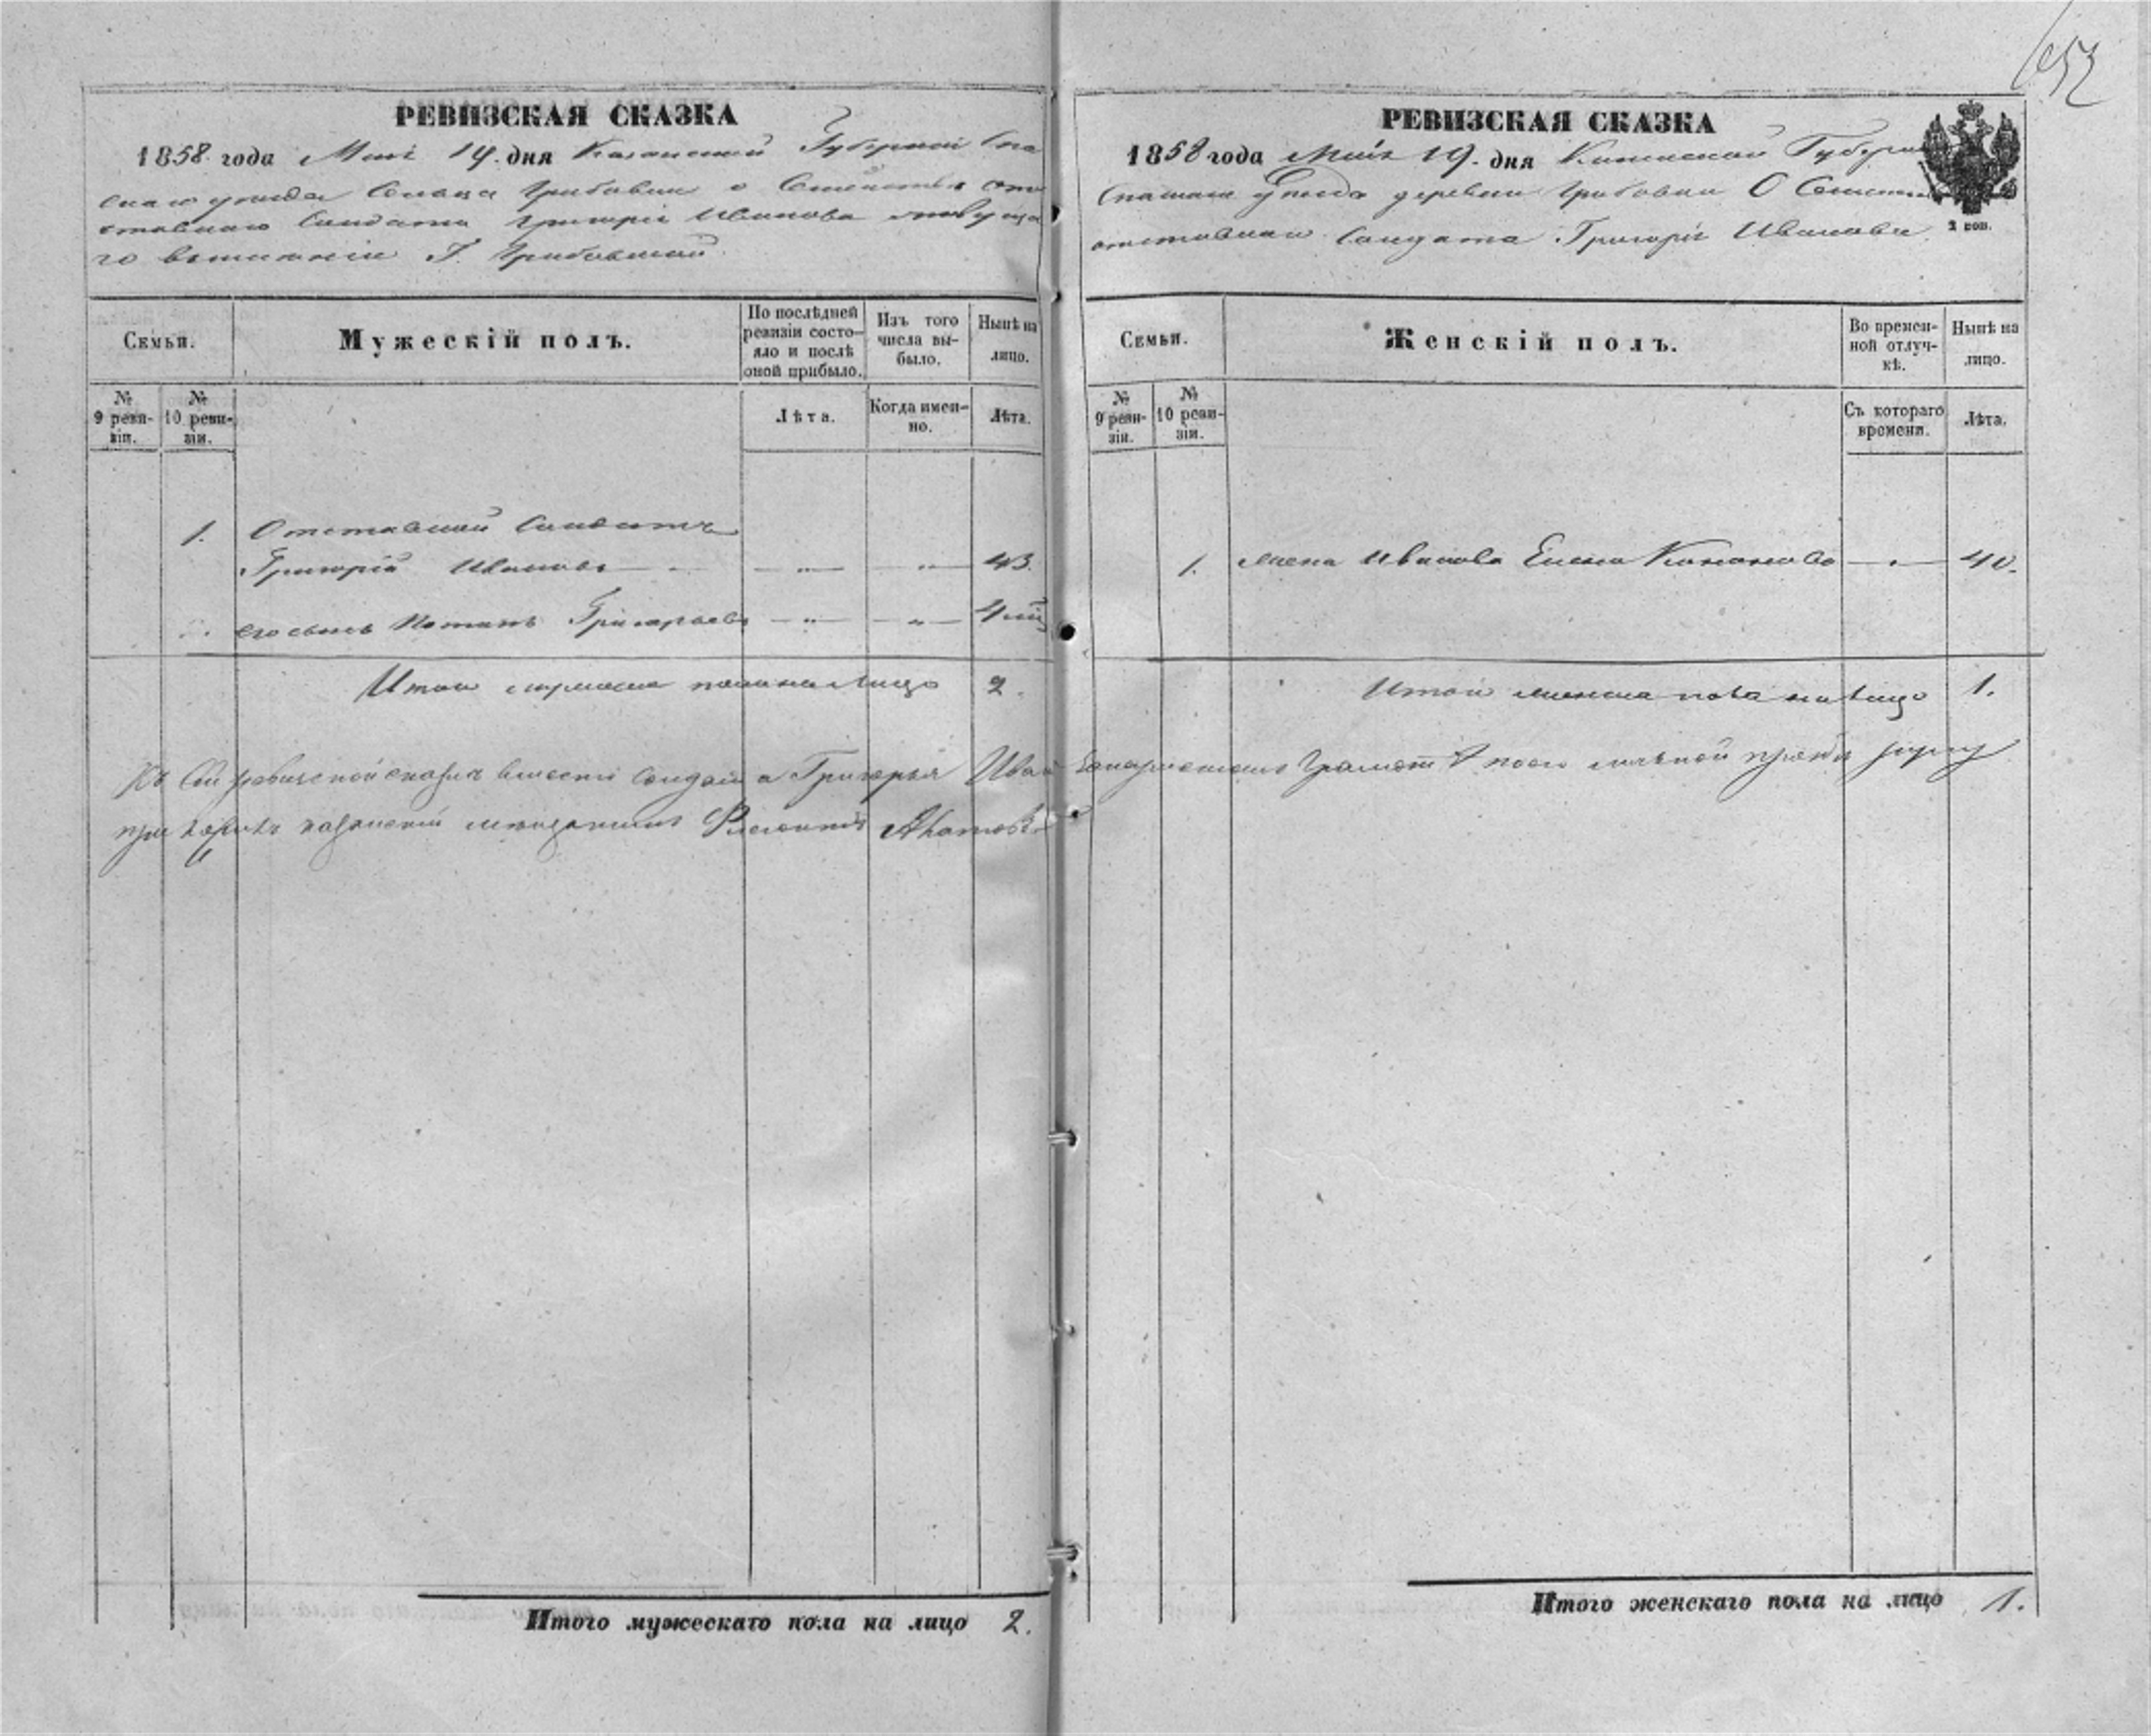 РЕВИЗСКАЯ СКАЗКА
1858 года Маія 19. дня Казанской Губерніи Спа
скаго уезда Сельца Грибовки о Семействе от
ставнаго Солдата Григорія Иванова
Г. Грибовской
Семьи.
Мужескій полъ.
По послѣдней ревизіи состояло и послѣ оной прибыло.
Изъ того числа выбыло.
Нынѣ на лицо.
№ 9 ревизіи.
№ 10 ревизіи.
Лѣта.
Когда именно.
Лѣта.
1. Отставной Солдатъ
Григорій Ивановъ — „ — — „ — 43.
его сынъ Потапъ Григорьевъ — „ — — „ — 4
Итого мужеска пола на лицо 2.
Къ сей ревизской сказке вместо Солдата Григорья Иван
при
Итого мужескаго пола на лицо 2.
652
РЕВИЗСКАЯ СКАЗКА
1858 года Маія 19. дня Казанской Губерни
Спаскаго Уезда деревни Грибовки О Семействе
отставнаго Солдата Григорія Иванова
2 коп.
Семьи.
Женскій полъ.
Во временной отлучкѣ.
Нынѣ на лицо.
№ 9 ревизіи.
№ 10 ревизіи.
Съ котораго времени.
Лѣта.
1. жена Иванова Елена Кононова — „ — 40.
Итого женска пола на лицо 1.
руку
Итого женскаго пола на лицо 1.